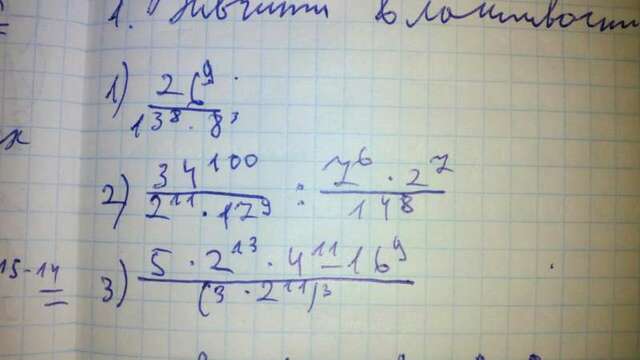 1. Вивчити властивості
1) 26⁹ / 13⁸ · 8³
2) 34¹⁰⁰ / 2¹¹ · 17⁹ : 7⁶ · 2⁷ / 14⁸
15-14
3) 5 · 2¹³ · 4¹¹ - 16⁹ / (3 · 2¹¹)³